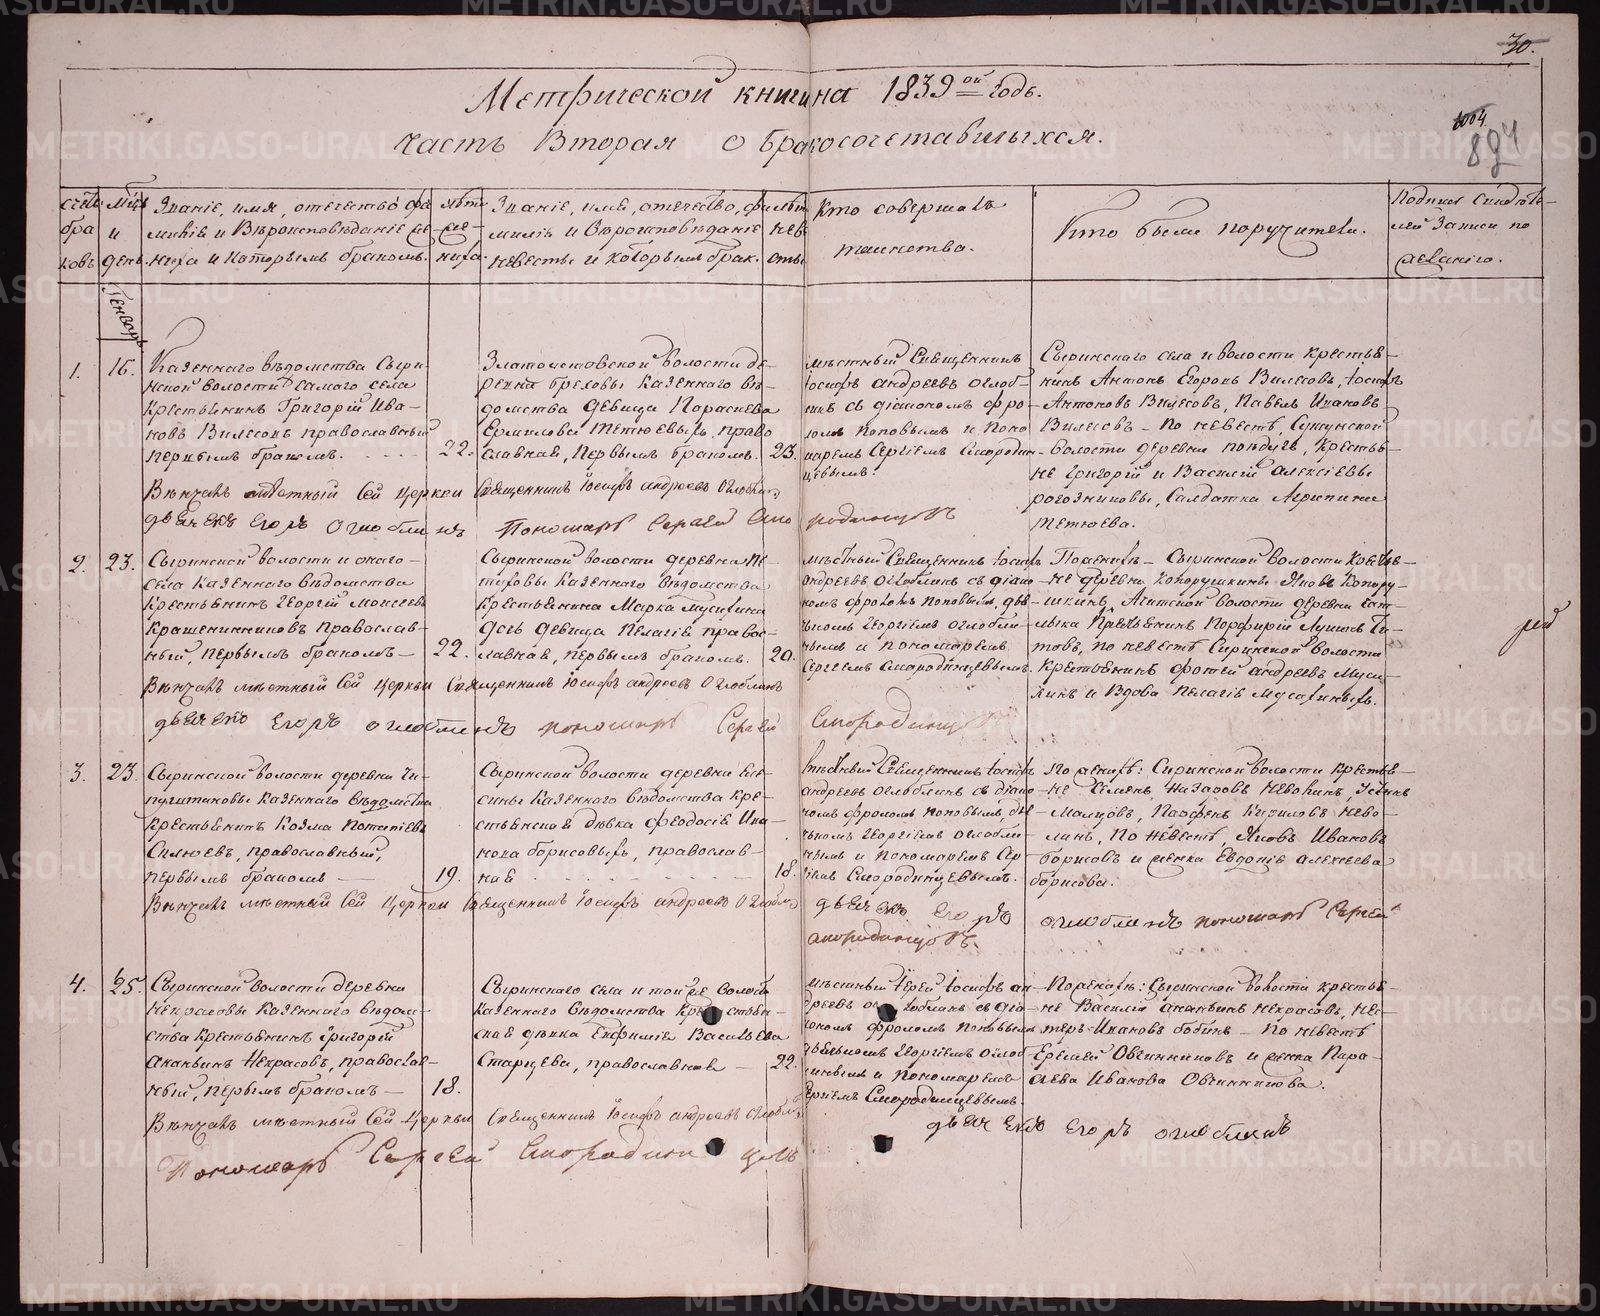 30.
Метрической книги на 1839ой Годъ.
1004
894
часть Вторая о бракосочетавшыхся.
счетъ браковъ
Мцъ и день
Званіе, имя, отечество, фамилія и Вѣроисповѣданіе жениха и которымъ бракомъ.
лѣта жениха
Званіе, имя, отечество, фамилія и Вѣроисповѣданіе невесты и которымъ брак.
лѣта невесты
Кто совершалъ
таинство.
Кто были поручители.
Подписи свидѣте-
лей Записи по
желанію.
Генварь
1.
16.
Казеннаго вѣдомства Сыри-
нской волости самаго села
Крестьянинъ Григорій Ива-
новъ Вилесовъ православный
первымъ бракомъ.
22.
Златоустовской волости де-
ревни казеннаго вѣ-
домства девица Параскева
Ермилова Тетюевыхъ право
славная, первымъ бракомъ.
23.
мѣстный Священникъ
Іосифъ андреевъ оглоб-
линъ съ діакономъ фро-
ломъ Поповымъ и Поно
маремъ Сергіемъ Смородин
цевымъ.
Сыринскаго села и волости крестья-
нинъ Антонъ Егоровъ Вилесовъ, Іосифъ
Антоновъ Вилесовъ, Павелъ Ивановъ
Вилесовъ - по невестѣ, Суксунской
волости деревни крестья-
не Григорій и Василій алексіевы
рогозниковы, Солдатка Агрипина
Тетюева.
Вѣнчалъ мѣстный Сей Церкви Священникъ Іосифъ андреевъ Оглоблинъ
дьячекъ Егоръ Оглоблинъ Пономарь Сергей Смородинцовъ
2.
23.
Сыринской волости и онаго-
села Казеннаго вѣдомства
Крестьянинъ Георгій Моисеевъ
Крашенинниковъ православ-
ный, первымъ бракомъ-
22.
Сыринской волости деревни Пе-
туховы Казеннаго вѣдомства
крестьянина Марка Мусихина
дочь девица Пелагія правос-
лавная, первымъ бракомъ.
20.
мѣстный Священникъ Іосифъ
андреевъ Оглоблинъ съ діако
номъ фроломъ Поповымъ, дья-
чкомъ Георгіемъ оглобли-
нымъ и пономаремъ
Сергіемъ Смородинцевымъ.
По женихѣ - Сыринской волости крестья-
не деревни Копорушкины Яковъ Копору-
шкинъ, Ачитской волости деревни
крестьянинъ Порфирій Ти-
товъ, по невестѣ Сиринской волости
крестьянинъ фотей андреевъ Муси-
хинъ и Вдова Пелагія Мусихиныхъ.
Вѣнчалъ мѣстный Сей Церкви Священникъ Іосифъ андреевъ Оглоблинъ
дьячекъ Егоръ оглоблинъ пономарь Сергей Смородинцовъ
3.
23.
Сыринской волости деревни Чи-
Казеннаго Вѣдомства
крестьянинъ Козма Потапіевъ
православный,
первымъ бракомъ -
19.
Сыринской волости деревни
Казеннаго вѣдомства кре-
стьянская дѣвка феодосія Ива-
нова борисовыхъ, православ-
ная
18.
мѣстный Священникъ Іосифъ
андреевъ оглоблинъ съ діако
номъ фроломъ поповымъ, дья
чкомъ Георгіемъ оглобли-
нымъ и пономаремъ Сер
гіемъ Смородинцевымъ.
По женихѣ: Сиринской волости крестья-
не Семенъ Назаровъ Неволинъ,
Парфенъ Кириловъ Нево-
линъ, по невестѣ Яковъ Ивановъ
борисовъ и женка Евдокія алексеева
борисова.
Вѣнчалъ мѣстный Сей Церкви Священникъ Іосифъ андреевъ Оглоблинъ дьячекъ Егоръ оглоблинъ пономарь Сергей
смородинцовъ.
4.
25.
Сыринской волости деревни
Некрасовы Казеннаго Вѣдом-
ства Крестьянинъ Григорій
Ананьинъ Некрасовъ, православ-
ный, первымъ бракомъ -
18.
Сыринскаго села и той же волости
Казеннаго Вѣдомства крестьян-
ская дѣвка Евфимія Васильева
Старцева, православная -
22.
мѣстный Іерей Іосифъ ан
дреевъ оглоблинъ съ діа-
кономъ фроломъ поповымъ
дьячкомъ Георгіемъ оглоб
линымъ и пономаремъ
Сергіемъ Смородинцевымъ.
По женихѣ: Сыринской волости крестья-
не Василій ананьинъ некрасовъ, Нес-
теръ Ивановъ бобинъ - по невестѣ
Еремей Овчинниковъ и женка Пара-
скева Иванова Овчинникова.
Вѣнчалъ мѣстный Сей Церкви Священникъ Іосифъ андреевъ оглоблинъ
дьячекъ Егоръ оглоблинъ
Пономарь Сергей Смородинцовъ
METRIKI.GASO-URAL.RU